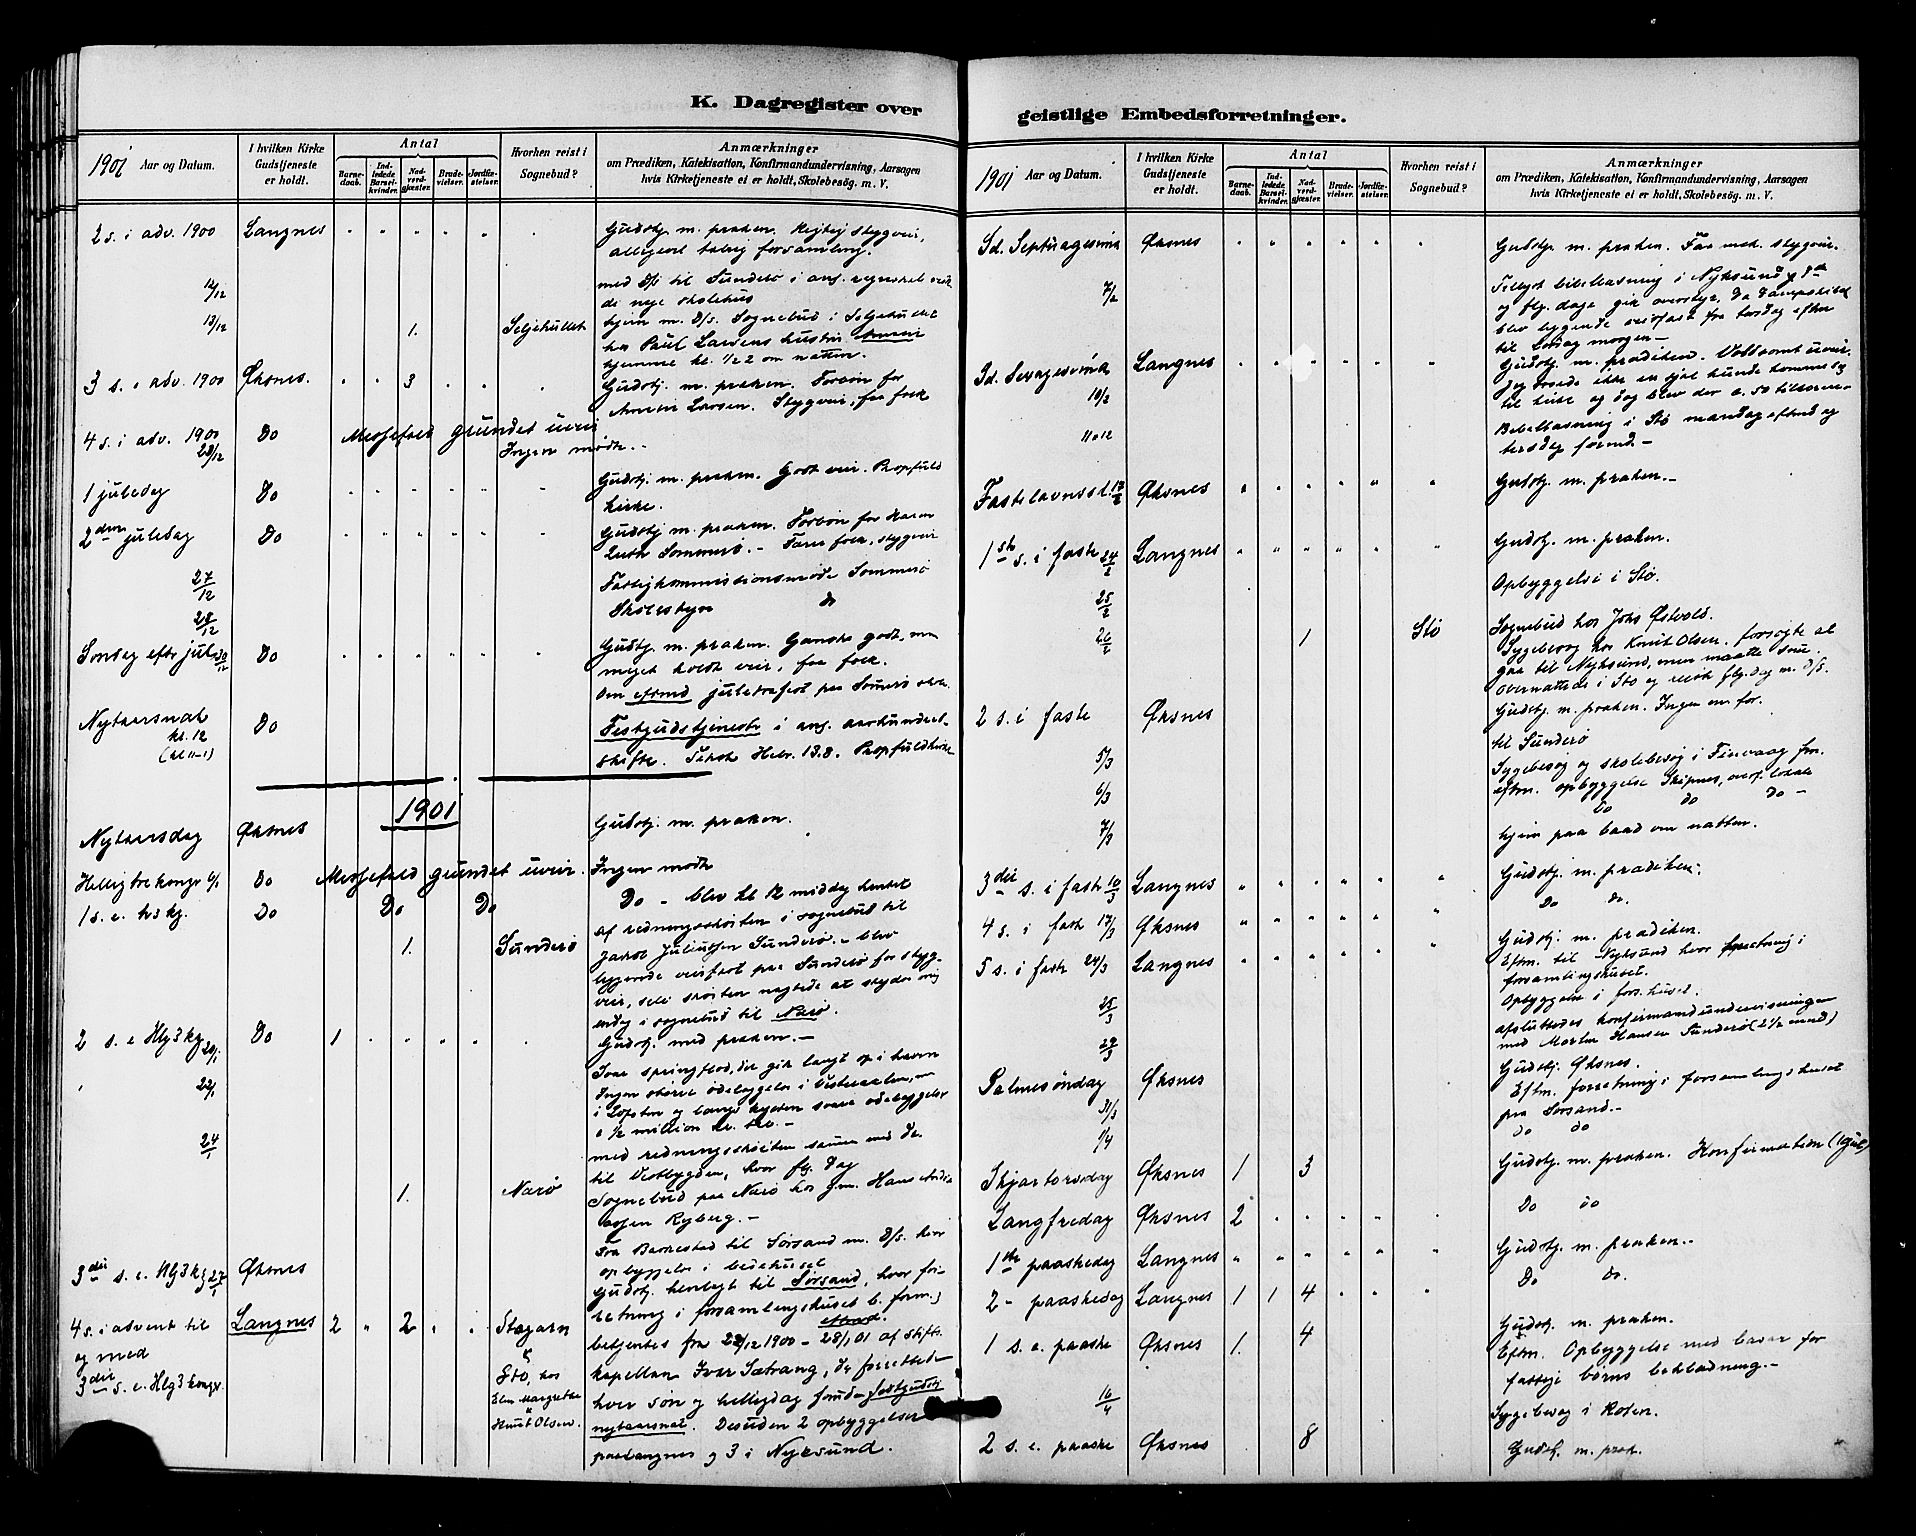 K. Dagregister over
1901 Aar og Datum.
I hvilken Kirke Gudstjeneste er holdt.
Antal
Barnedaab.
Indledede Barselkvinder.
Nadverdgjæster.
Brudevielser.
Jordfæstelser.
Hvorhen reist i Sognebud?
Anmærkninger
om Prædiken, Katekisation, Konfirmandundervisning, Aarsagen
hvis Kirketjeneste ei er holdt, Skolebesög. m. V.
2 s. i adv. 1900 Langnes " " " " " " Gudstj. m. præken. stygveir,
alligevel talrig forsamling.
12/12 med D/S til Sunderö i anl. regnskab
de nye skolehus
13/12 1. Seljehullet hjem m. D/S. Sognebud i Seljehullet
hos Paul Larsens hustru
hjemme kl. 1/2 2 om natten.
3 s. i adv. 1900 Øksnes. " " 3 " " " Gudstj. m. præken. Forbön for
Larsen. Stygveir, faa folk
4 s. i adv. 1900 23/12 Do Messefald grundet uveir
Ingen mödte. -
1 juledag Do " " " " " " Gudstj. m. præken. Godt veir. Propfuld
kirke.
2den juledag Do " " " " " " Gudstj m. præken. Forbön for Karen
Sommerö. - Færre folk, stygveir
27/12 Fattigkommissionsmöde Sommerö
28/12 Skolestyre do
Söndag efter jul 30/12 Do " " " " " " Gudstj. m. præken. Ganske godt, men
meget koldt veir, faa folk.
Om efterm juletræfest paa Sommerö
Nytaarsnat
kl. 12
(kl 11-1) Do Festgudstjeneste i anl. aarhundred-
skifte. Tekst Hebr. 13.8. Propfuld kirke
1901
Nytaarsdag Øksnes Gudstj. m. præken.
Hellig tre konger 6/1 Do Messefald grundet uveir. Ingen mödte
1 s. e. h3kg. Do Do Do Do - blev kl 12 middag hentet
af redningssköiten i sognebud til
1. Sunderö Jakob Juliussen Sunderö. - blev
liggende veirfast paa Sunderö for styg-
veir, selv sköiten nægtede at skyde mig
endog i sognebud til Narö.
2 s. e Hlg3kg 20/1 Do 1 " " " " " Gudstj. med præken. -
22/1 Svær springflod, der gik langt op i haven
Ingen större ödelæggelse i Vesteraalen, men
i Lofoten og langs kysten svære ödelæggelser
1/2 million kr. -
24/1 med redningsskoiten sammen med
til Vestbygden, hvor flg. dag
1. Narö Sognebud paa Narö hos gm. Hans
Ryberg. -
Fra Barkestad til Sörsand m. D/S. hvor
opbyggelse i bedehuset
3die s. e. Hlg3kg 27/1 Øksnes Gudstj. henlagt til Sörsand, hvor for-
retning i forsamlingshuset
4 s. i advent til Langnes 2 " 2 " " Stægarn betjentes fra 1900 - 28/1 01 af stifts
og med & kapellan Iver Sætrang, forrettede
3die s. e. Hlg3kongr. Stö, hos hver sön og helligdag foruden festgudstj
Elen Margrethe nytaarsnat. Desuden 2 opbyggelser
Knut Olsen. paa Langnes og 3 i Nyksund.
geistlige Embedsforretninger.
1901 Aar og Datum.
I hvilken Kirke Gudstjeneste er holdt.
Antal
Barnedaab.
Indledede Barselkvinder.
Nadverdgjæster.
Brudevielser.
Jordfæstelser.
Hvorhen reist i Sognebud?
Anmærkninger
om Prædiken, Katekisation, Konfirmandundervisning, Aarsagen
hvis Kirketjeneste ei er holdt, Skolebesög. m. V.
Sd. Septuagesima Øksnes " " " " " " Gudstj. m. præken. Faa med. stygveir.
7/2 bibellæsning i Nyksund 8de
og flg. dage gik overstyr, da
blev liggende veirfast fra torsdag efter
til Lördag morgen -
Sd. Sexagesima Langnes " " " " " Gudstj. m. prædiken. Voldsomt uveir.
10/2 Jeg troede ikke en sjel kunde komme sig
til kirke og dog blev der c. 50 tilhörer -
11 o 12 Bibellæsning i Stö mandag efterm og
tirsdag form. -
Fastelavnssd. Øksnes " " " " " " Gudstj. m. præken. -
1ste s. i faste 24/2 Langnes " " " " " " Gudstj. m. præken.
25/2 Opbyggelse i Stö.
26/2 1 Stö Sognebud hos Johs Østvold.
Sygebesög hos Knut Olsen. forsögte at
gaa til Nyksund, men maatte snu.
overnattede i Stö og reiste flg. dag m. D/S.
2 s. i faste Øksnes Gudstj. m. præken. Ingen
til Sunderö
5/3 Sygebesög og skolebesög i Finvaag
6/3 efterm. opbyggelse Skipnes, lokale
Do do do -
7/3 hjem paa baad om natten.
3die s. i faste 10/3 Langnes " " " " " " Gudstj. m. prædiken.
4 s. i faste 17/3 Øksnes " " " " " " Do do.
5 s. i faste 24/3 Langnes " " " " " " Gudstj. m. prædiken.
Eftm. til Nyksund hvor forretning i
forsamlingshuset.
25/3 Opbyggelse i fors. huset.
29/3 afsluttedes konfirmandundervisningen
med Morten Hansen Sunderö (2 1/2 )
Palmesöndag Øksnes Gudstj. Øksnes.
31/3 Eftm. forretning i forsamlingshuset
paa Sörsand. -
1/4 do do
Skjærtorsdag Øksnes 1 3 Gudstj. m. præken. Konfirmation (1 gut)
Langfredag Øksnes 2 " " " " " Do do
1ste paaskedag Langnes " " " " " " Gudstj. m. præken. -
2 - paaskedag Langnes 1 1 4 " " " Do do.
1 s. e. paaske Øksnes 1. 4 Gudstj. m. præken.
Eftm. Opbyggelse med basar for
fattige börns beklædning. -
16/4 Sygebesög i Rosen.
2 s. e. paaske Øksnes 8 Gudstj. m. præk.